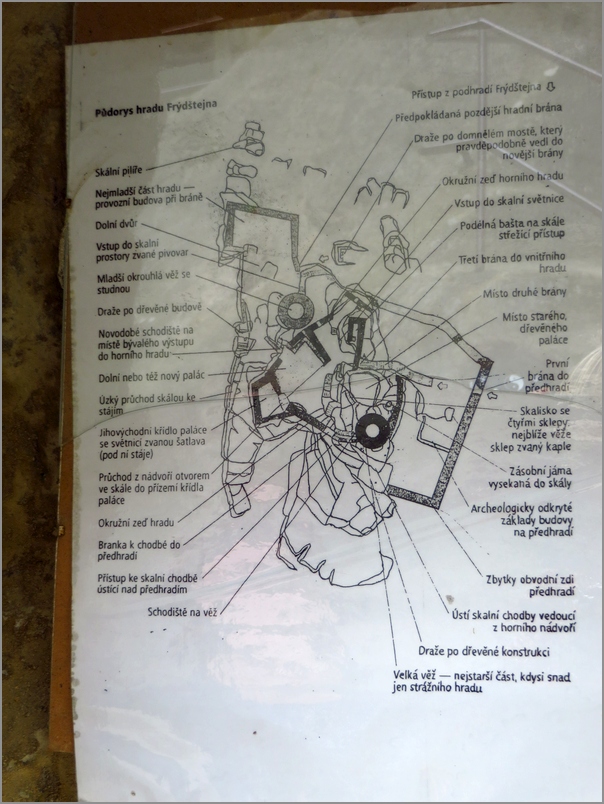 Půdorys hradu Frýdštejna
Skální pilíře
Nejmladší část hradu —
provozní budova při bráně
Dolní dvůr
Vstup do skalní
prostory zvané pivovar
Mladší okrouhlá věž se
studnou
Draže po dřevěné budově
Novodobé schodiště na
místě bývalého výstupu
do horního hradu
Dolní nebo též nový palác
Úzký průchod skálou ke
stájím
Jihovýchodní křídlo paláce
se světnicí zvanou šatlava
(pod ní stáje)
Průchod z nádvoří otvorem
ve skále do přízemí křídla
paláce
Okružní zeď hradu
Branka k chodbě do
předhradí
Přístup ke skalní chodbě
ústící nad předhradím
Schodiště na věž
Přístup z podhradí Frýdštejna
Předpokládaná pozdější hradní brána
Draže po domnělém mostě, který
pravděpodobně vedl do
novější brány
Okružní zeď horního hradu
Vstup do skalní světnice
Podélná bašta na skále
střežící přístup
Třetí brána do vnitřního
hradu
Místo druhé brány
Místo starého,
dřevěného
paláce
První
brána do
předhradí
Skalisko se
čtyřmi sklepy,
nejblíže věže
sklep zvaný kaple
Zásobní jáma
vysekaná do skály
Archeologicky odkryté
základy budovy
na předhradí
Zbytky obvodní zdi
předhradí
Ústí skalní chodby vedoucí
z horního nádvoří
Draže po dřevěné konstrukci
Velká věž — nejstarší část, kdysi snad
jen strážního hradu